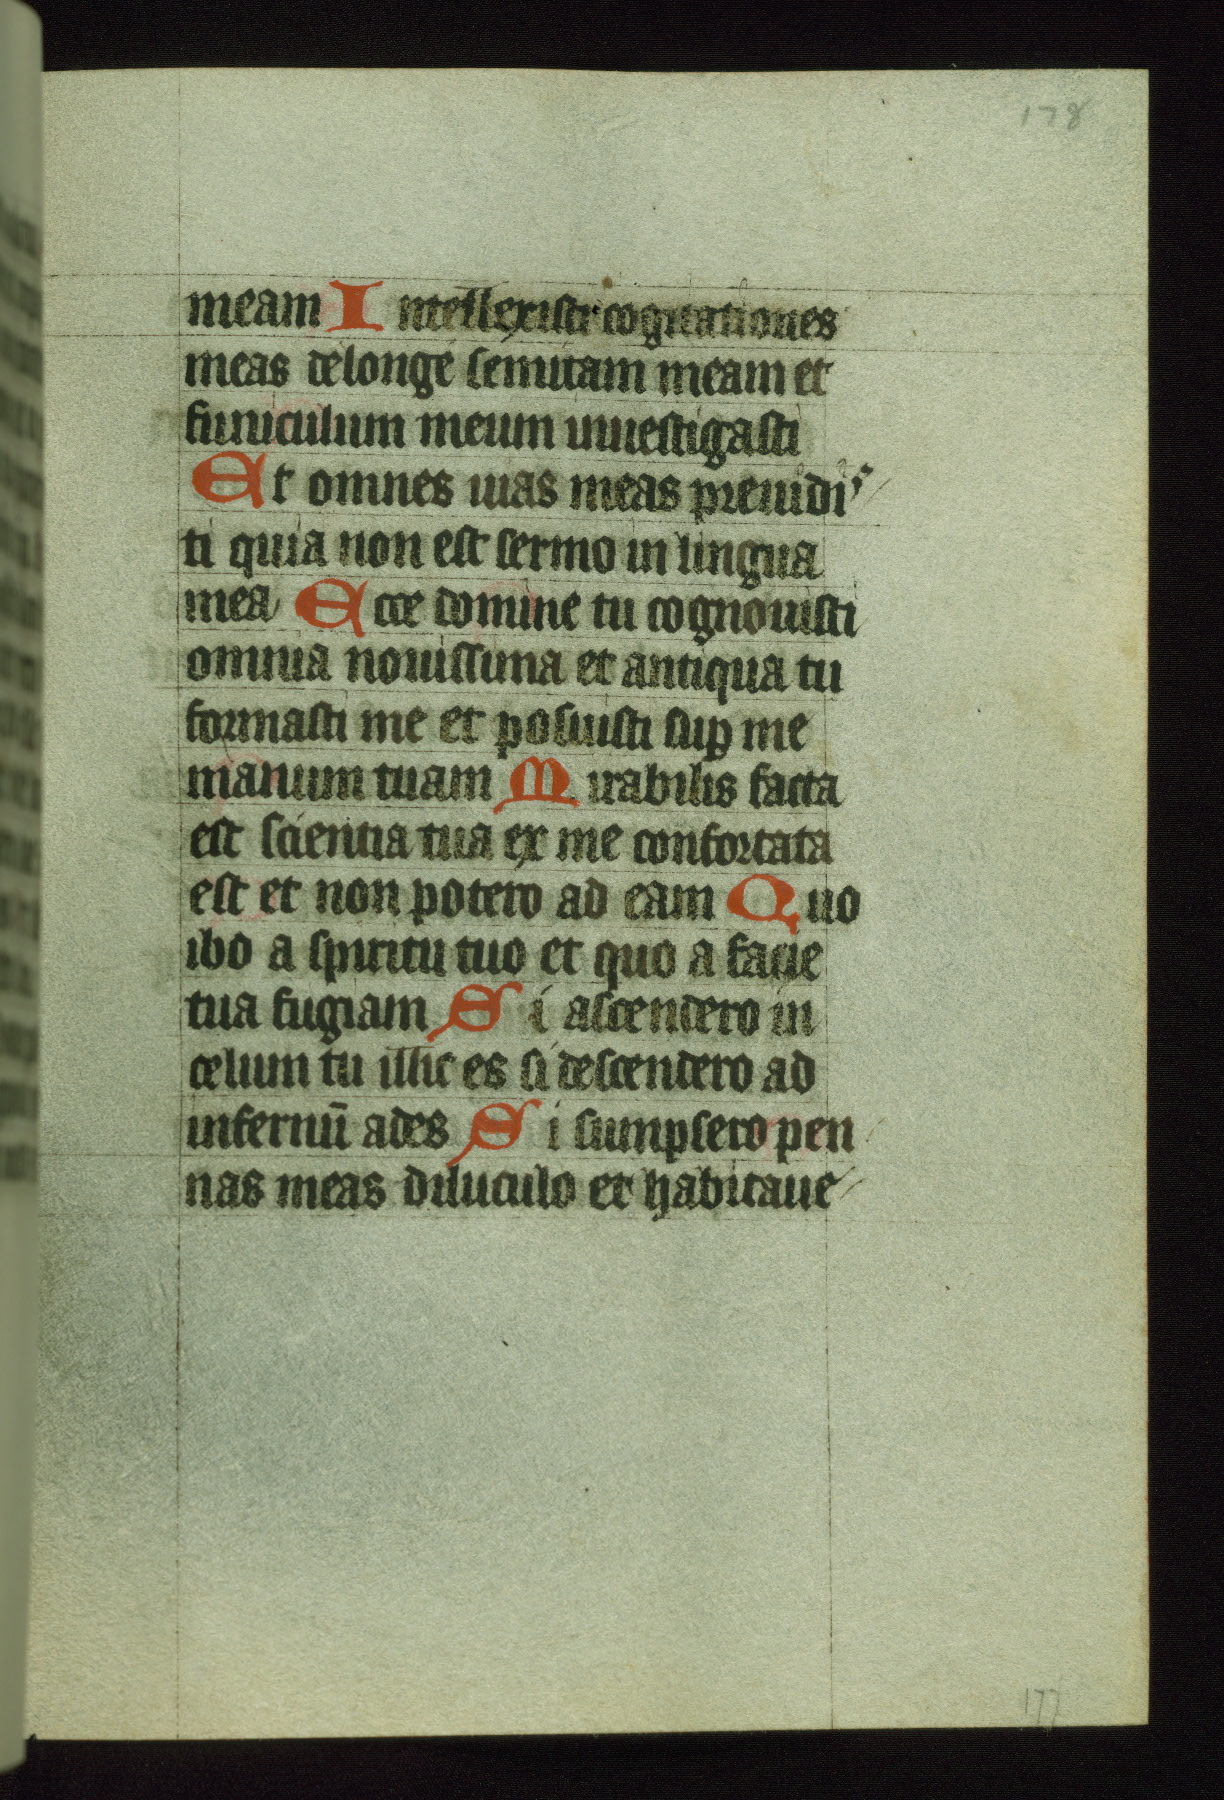 178
meam Intellexisti cogitationes
meas de longe semitam meam et
funiculum meum inuestigasti
Et omnes uias meas preuidis
ti quia non est sermo in lingua
mea Ecce domine tu cognouisti
omnia nouissima et antiqua tu
formasti me et posuisti suꝑ me
manum tuam Mirabilis facta
est scientia tua ex me confortata
est et non potero ad eam Quo
ibo a spiritu tuo et quo a facie
tua fugiam Si ascendero in
celum tu illic es si descendero ad
infernū ades Si sumpsero pen
nas meas diluculo et habitaue
177